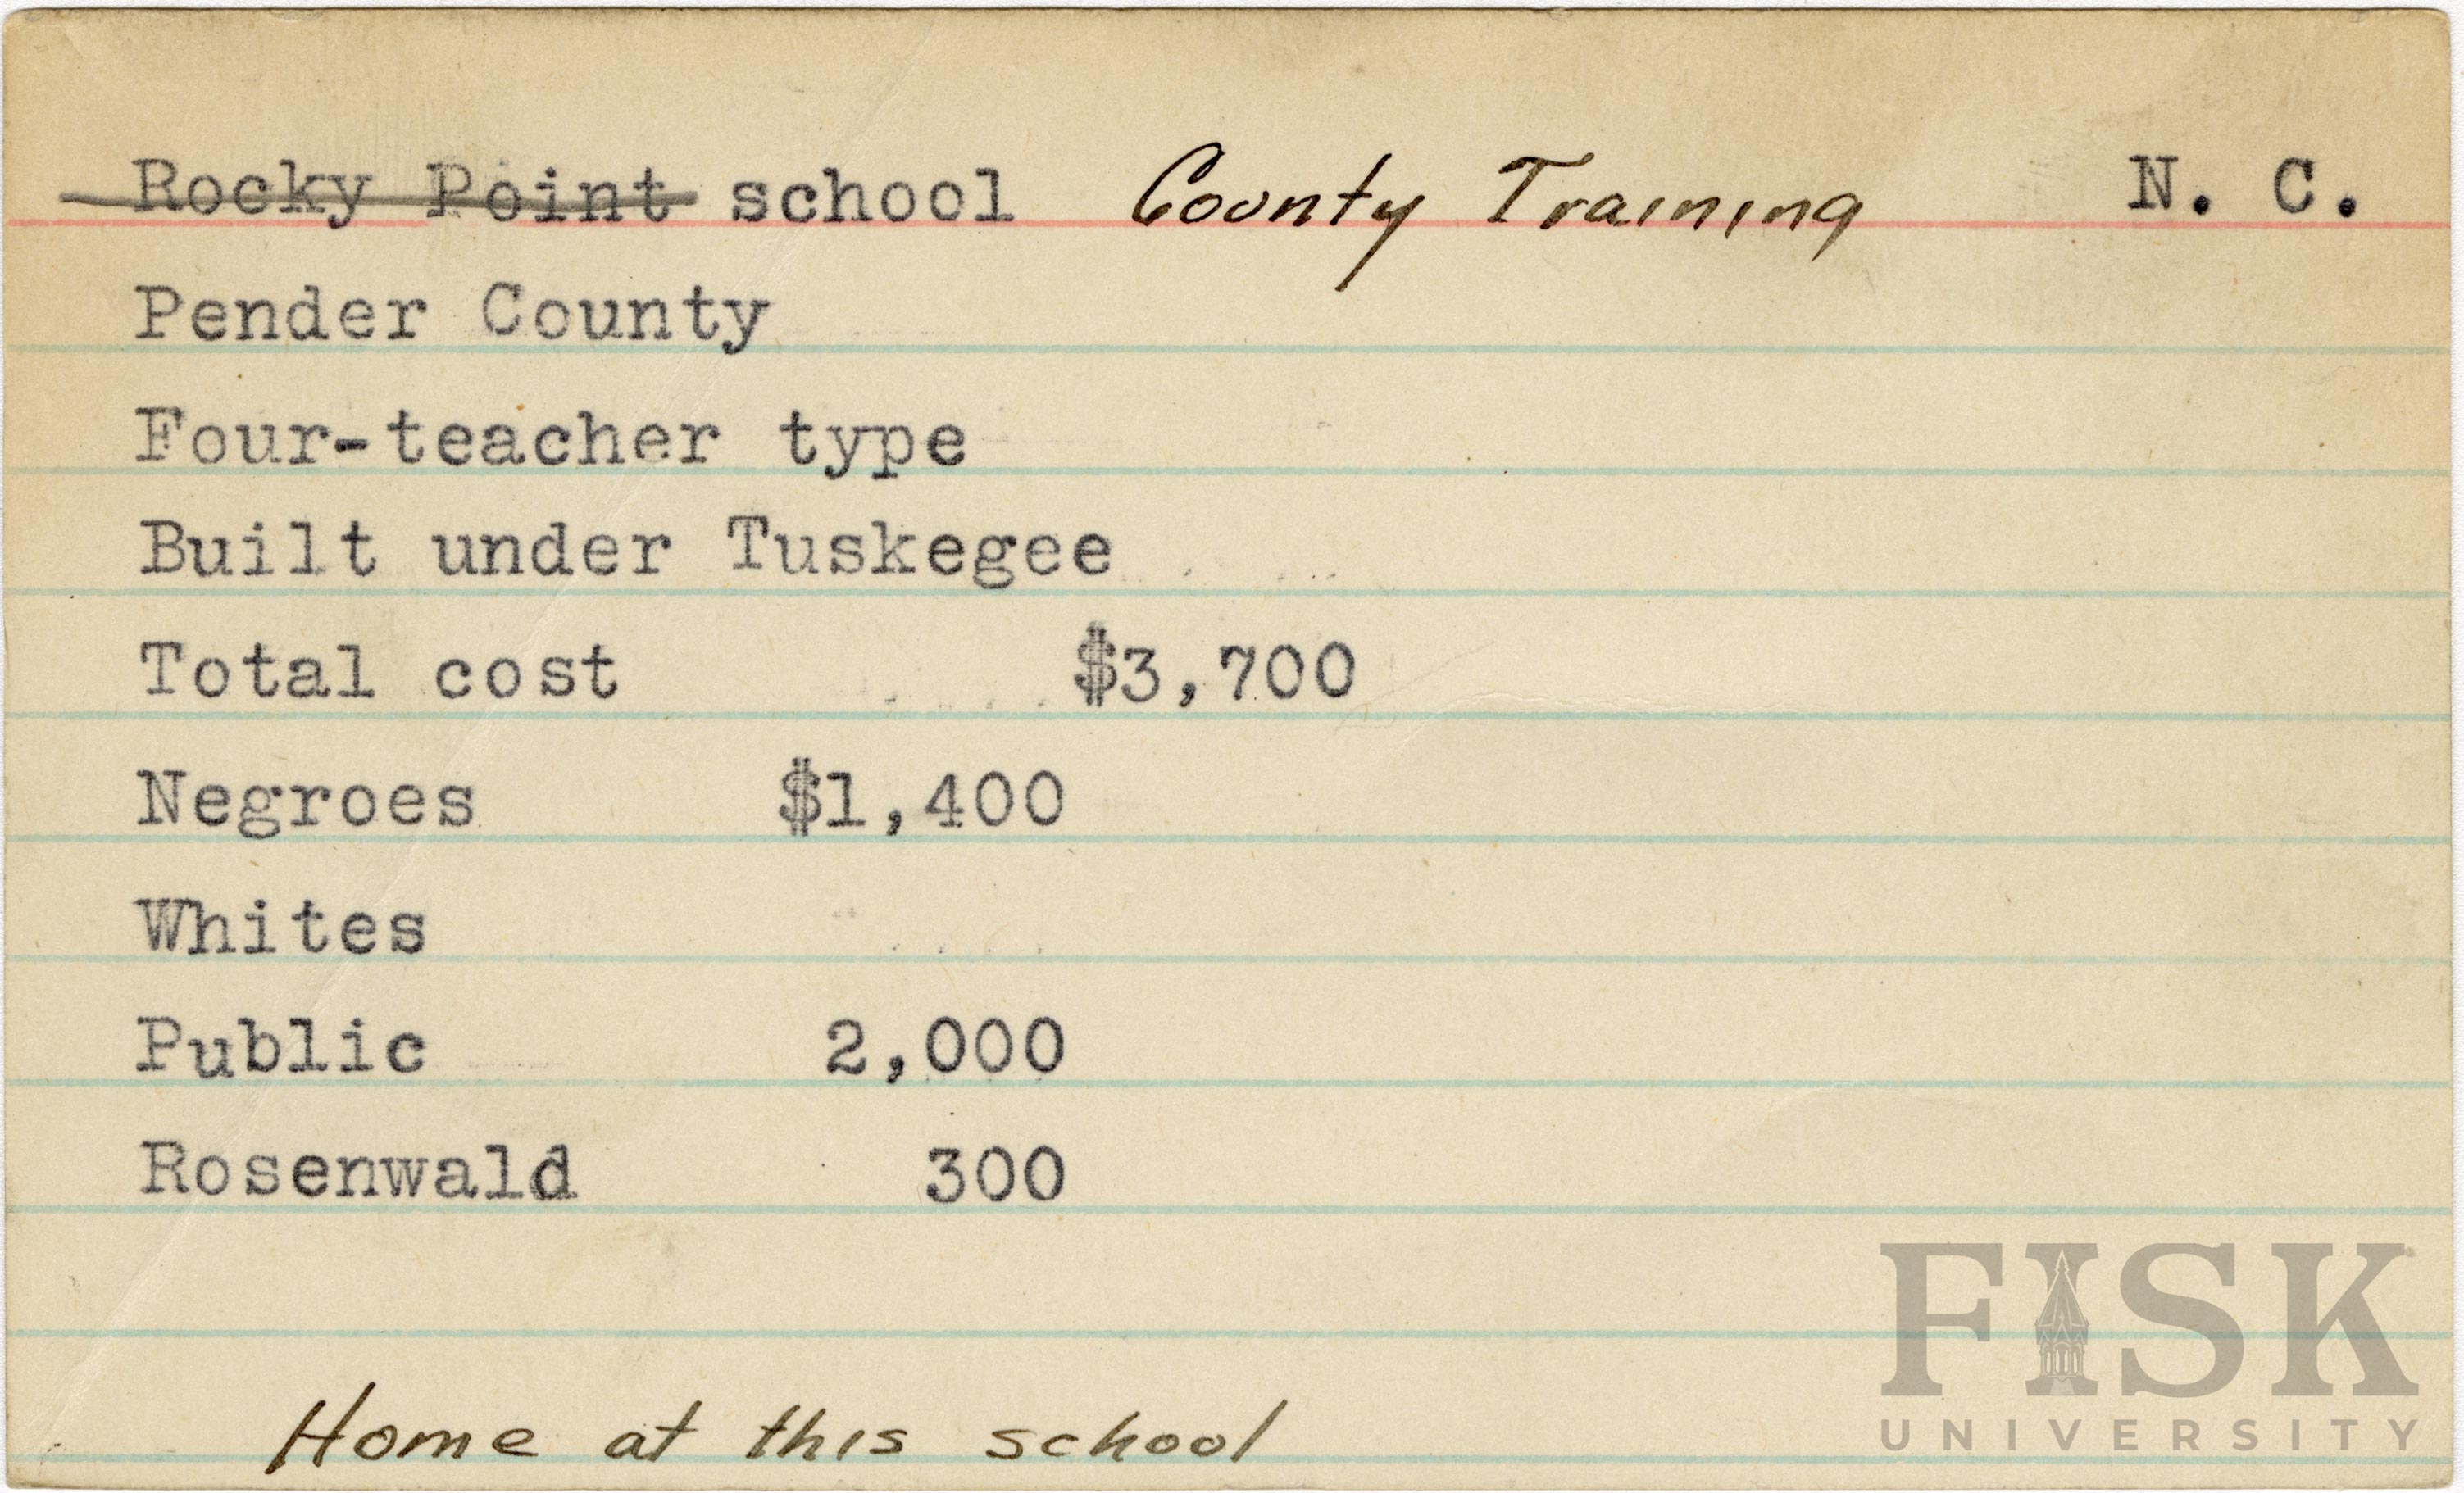 Rocky Point school County Training N. C.
Pender County
Four-teacher type
Built under Tuskegee
Total cost $3,700
Negroes $1,400
Whites
Public 2,000
Rosenwald 300
Home at this school
FISK
UNIVERSITY